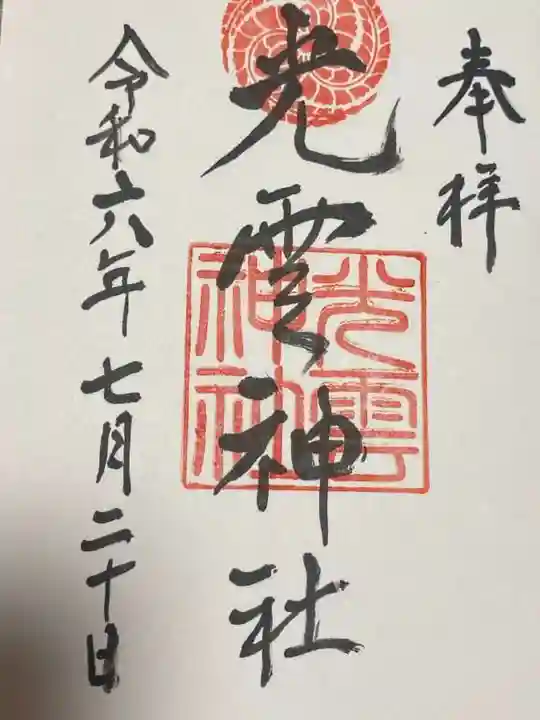 奉拝
光雲神社
光雲
神社
令和六年七月二十日